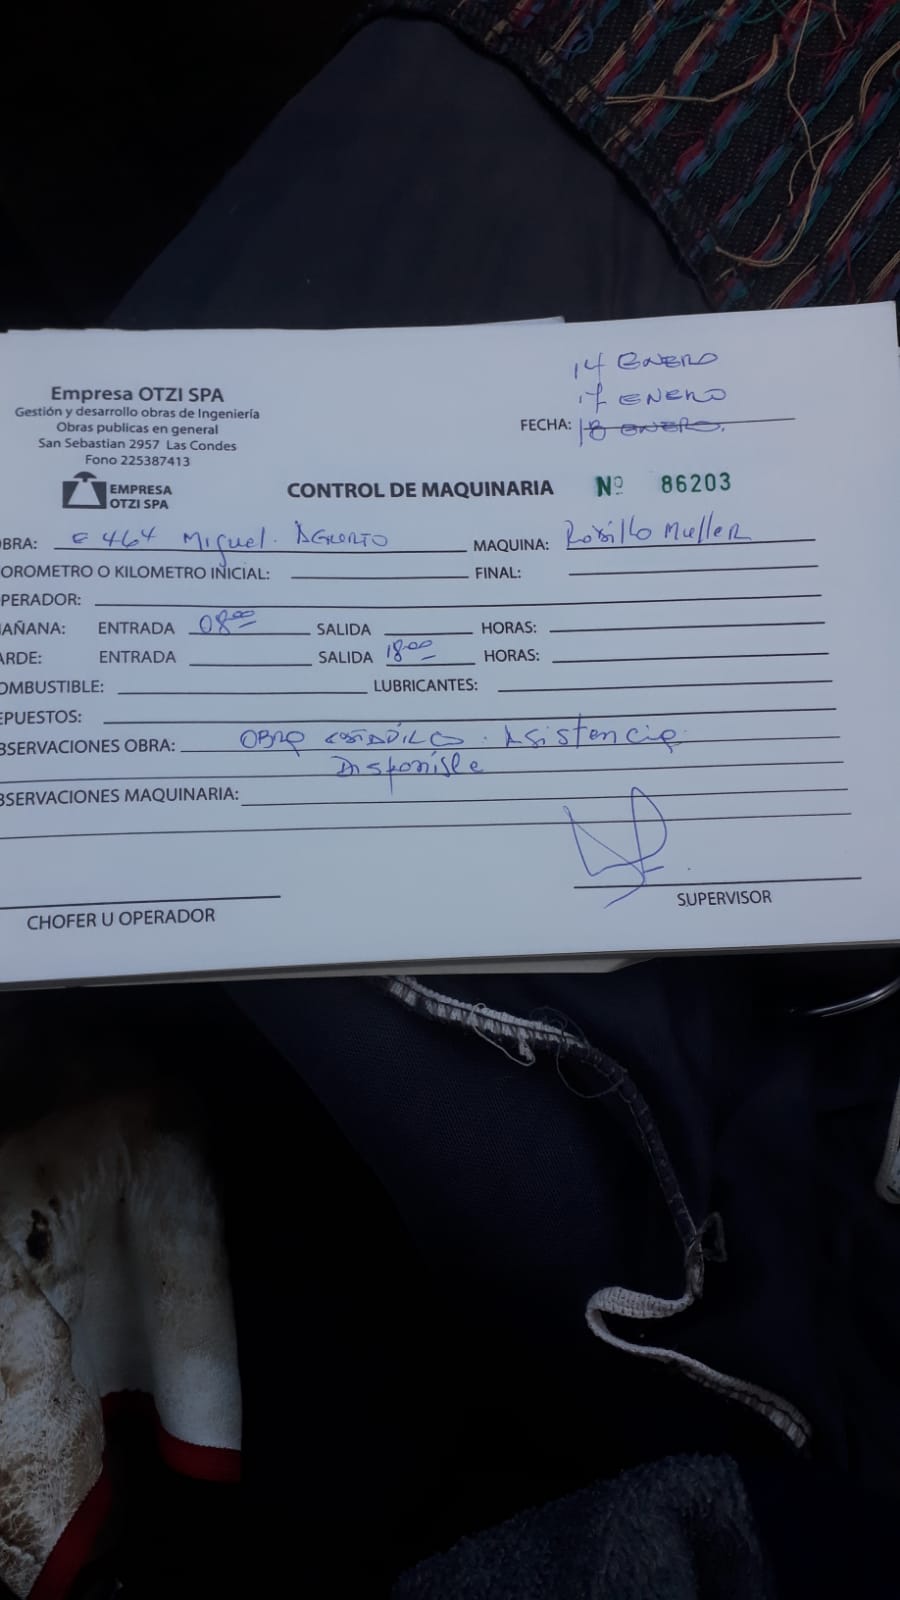 14 ENERO
17 ENERO
FECHA: 18 ENERO.
Empresa OTZI SPA
Gestión y desarrollo obras de Ingeniería
Obras publicas en general
San Sebastian 2957 Las Condes
Fono 225387413
EMPRESA
OTZI SPA
CONTROL DE MAQUINARIA Nº 86203
BRA: E 464 Miguel. AGURTO MAQUINA: Rodillo Muller
OROMETRO O KILOMETRO INICIAL: FINAL:
PERADOR:
AÑANA: ENTRADA 08:00 SALIDA HORAS:
ARDE: ENTRADA SALIDA 18:00 HORAS:
OMBUSTIBLE: LUBRICANTES:
EPUESTOS:
BSERVACIONES OBRA: OBRA Asistencia
Disponible
BSERVACIONES MAQUINARIA:
CHOFER U OPERADOR
SUPERVISOR